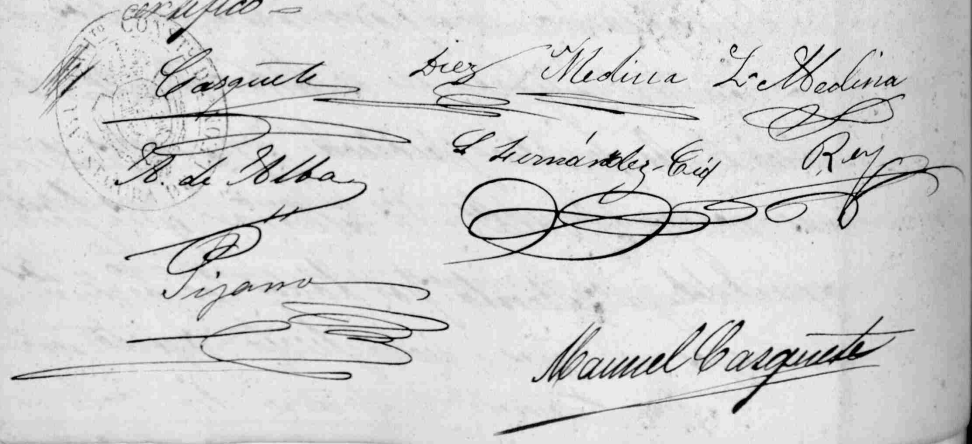 certifico =
Casquete Diez Medina L. Medina
R. de Alba L. Fernández-Cid Rey
Pizarro
Manuel Casquete